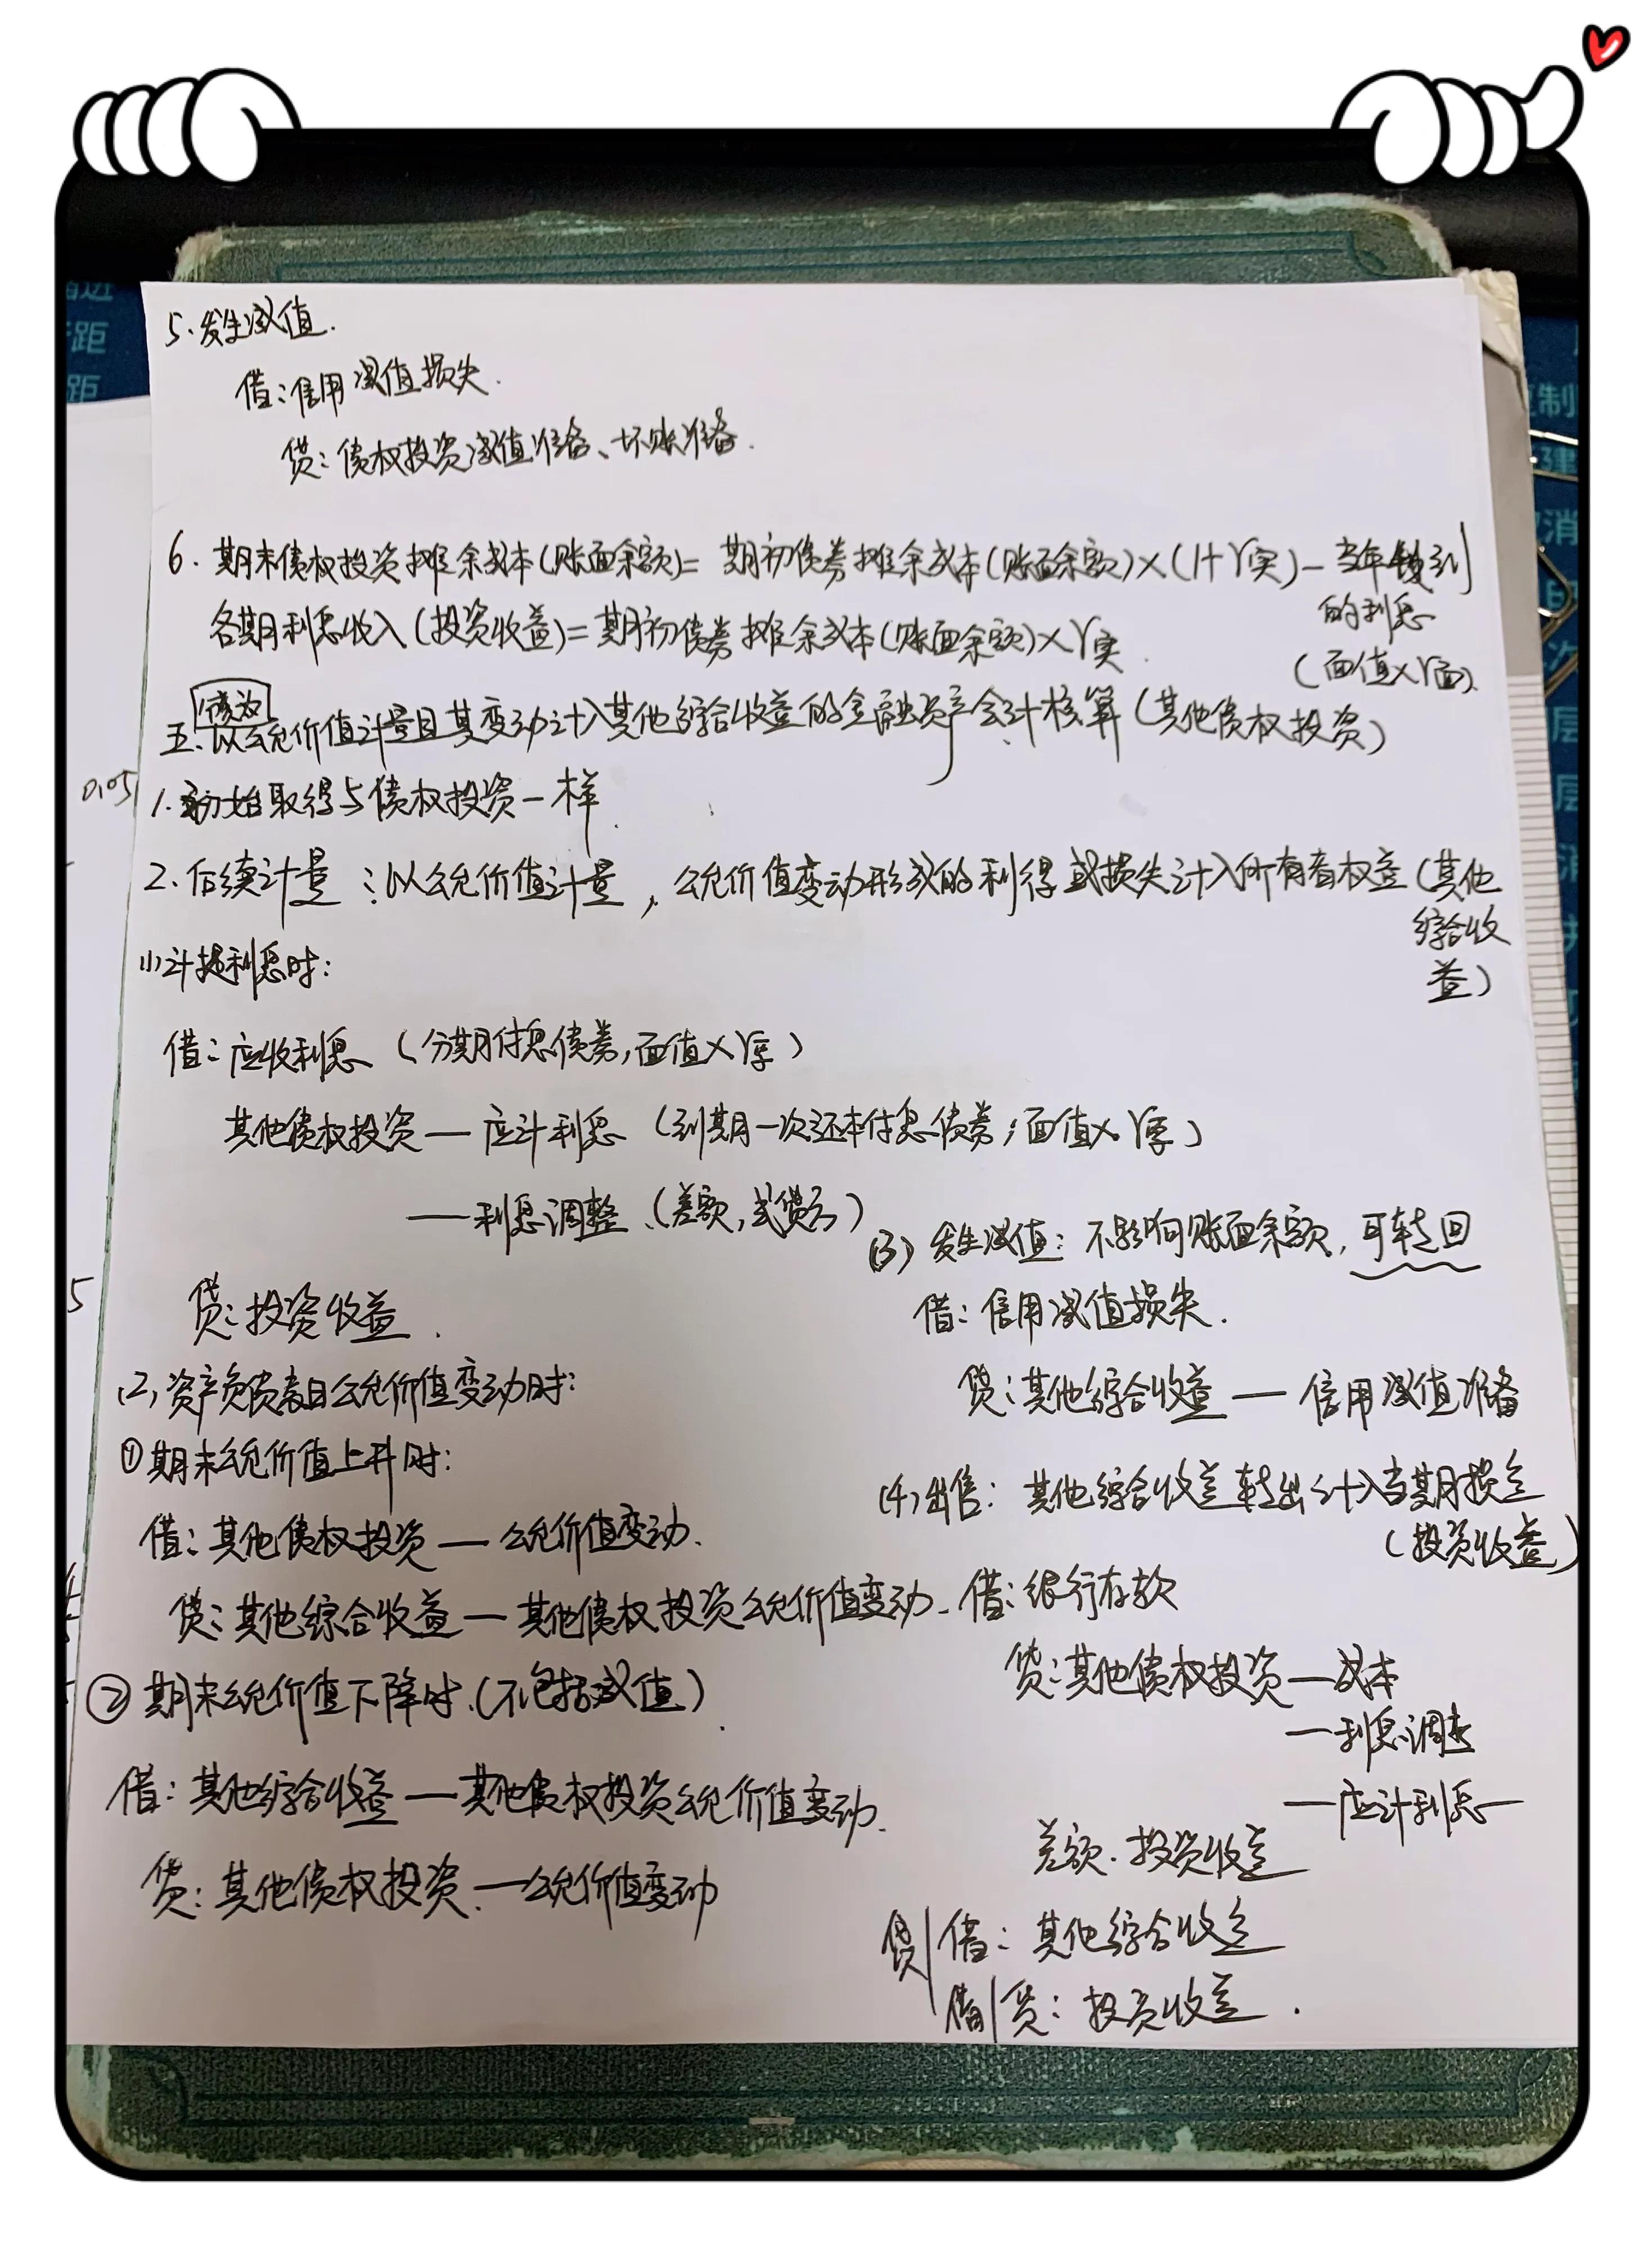 5. 发生减值.
借：信用减值损失.
贷：债权投资减值准备、坏账准备.
6. 期末债权投资摊余成本(账面余额)= 期初债券摊余成本(账面余额)×(1+r实)-当年收到
的利息
(面值×r面).
各期利息收入(投资收益)=期初债券摊余成本(账面余额)×r实.
五、以公允价值计量且其变动计入其他综合收益的金融资产会计核算(其他债权投资)
1. 初始取得与债权投资一样.
2. 后续计量：以公允价值计量，公允价值变动形成的利得或损失计入所有者权益(其他
综合收
益)
(1)计提利息时：
借：应收利息(分期付息债券,面值×r票)
其他债权投资—应计利息(到期一次还本付息债券,面值×r票)
—利息调整(差额,或贷方)
贷：投资收益.
(2)资产负债表日公允价值变动时：
①期末公允价值上升时：
借：其他债权投资—公允价值变动.
贷：其他综合收益—其他债权投资公允价值变动.
②期末公允价值下降时.(不包括减值).
借：其他综合收益—其他债权投资公允价值变动.
贷：其他债权投资—公允价值变动
(3)发生减值：不影响账面余额,可转回
借：信用减值损失.
贷：其他综合收益—信用减值准备
(4)出售：其他综合收益转出计入当期损益
(投资收益)
借：银行存款
贷：其他债权投资—成本
—利息调整
—应计利息
差额.投资收益
贷/借：其他综合收益
借/贷：投资收益.
0.05
5
距
距
制
建
消
印
次
层
层
消